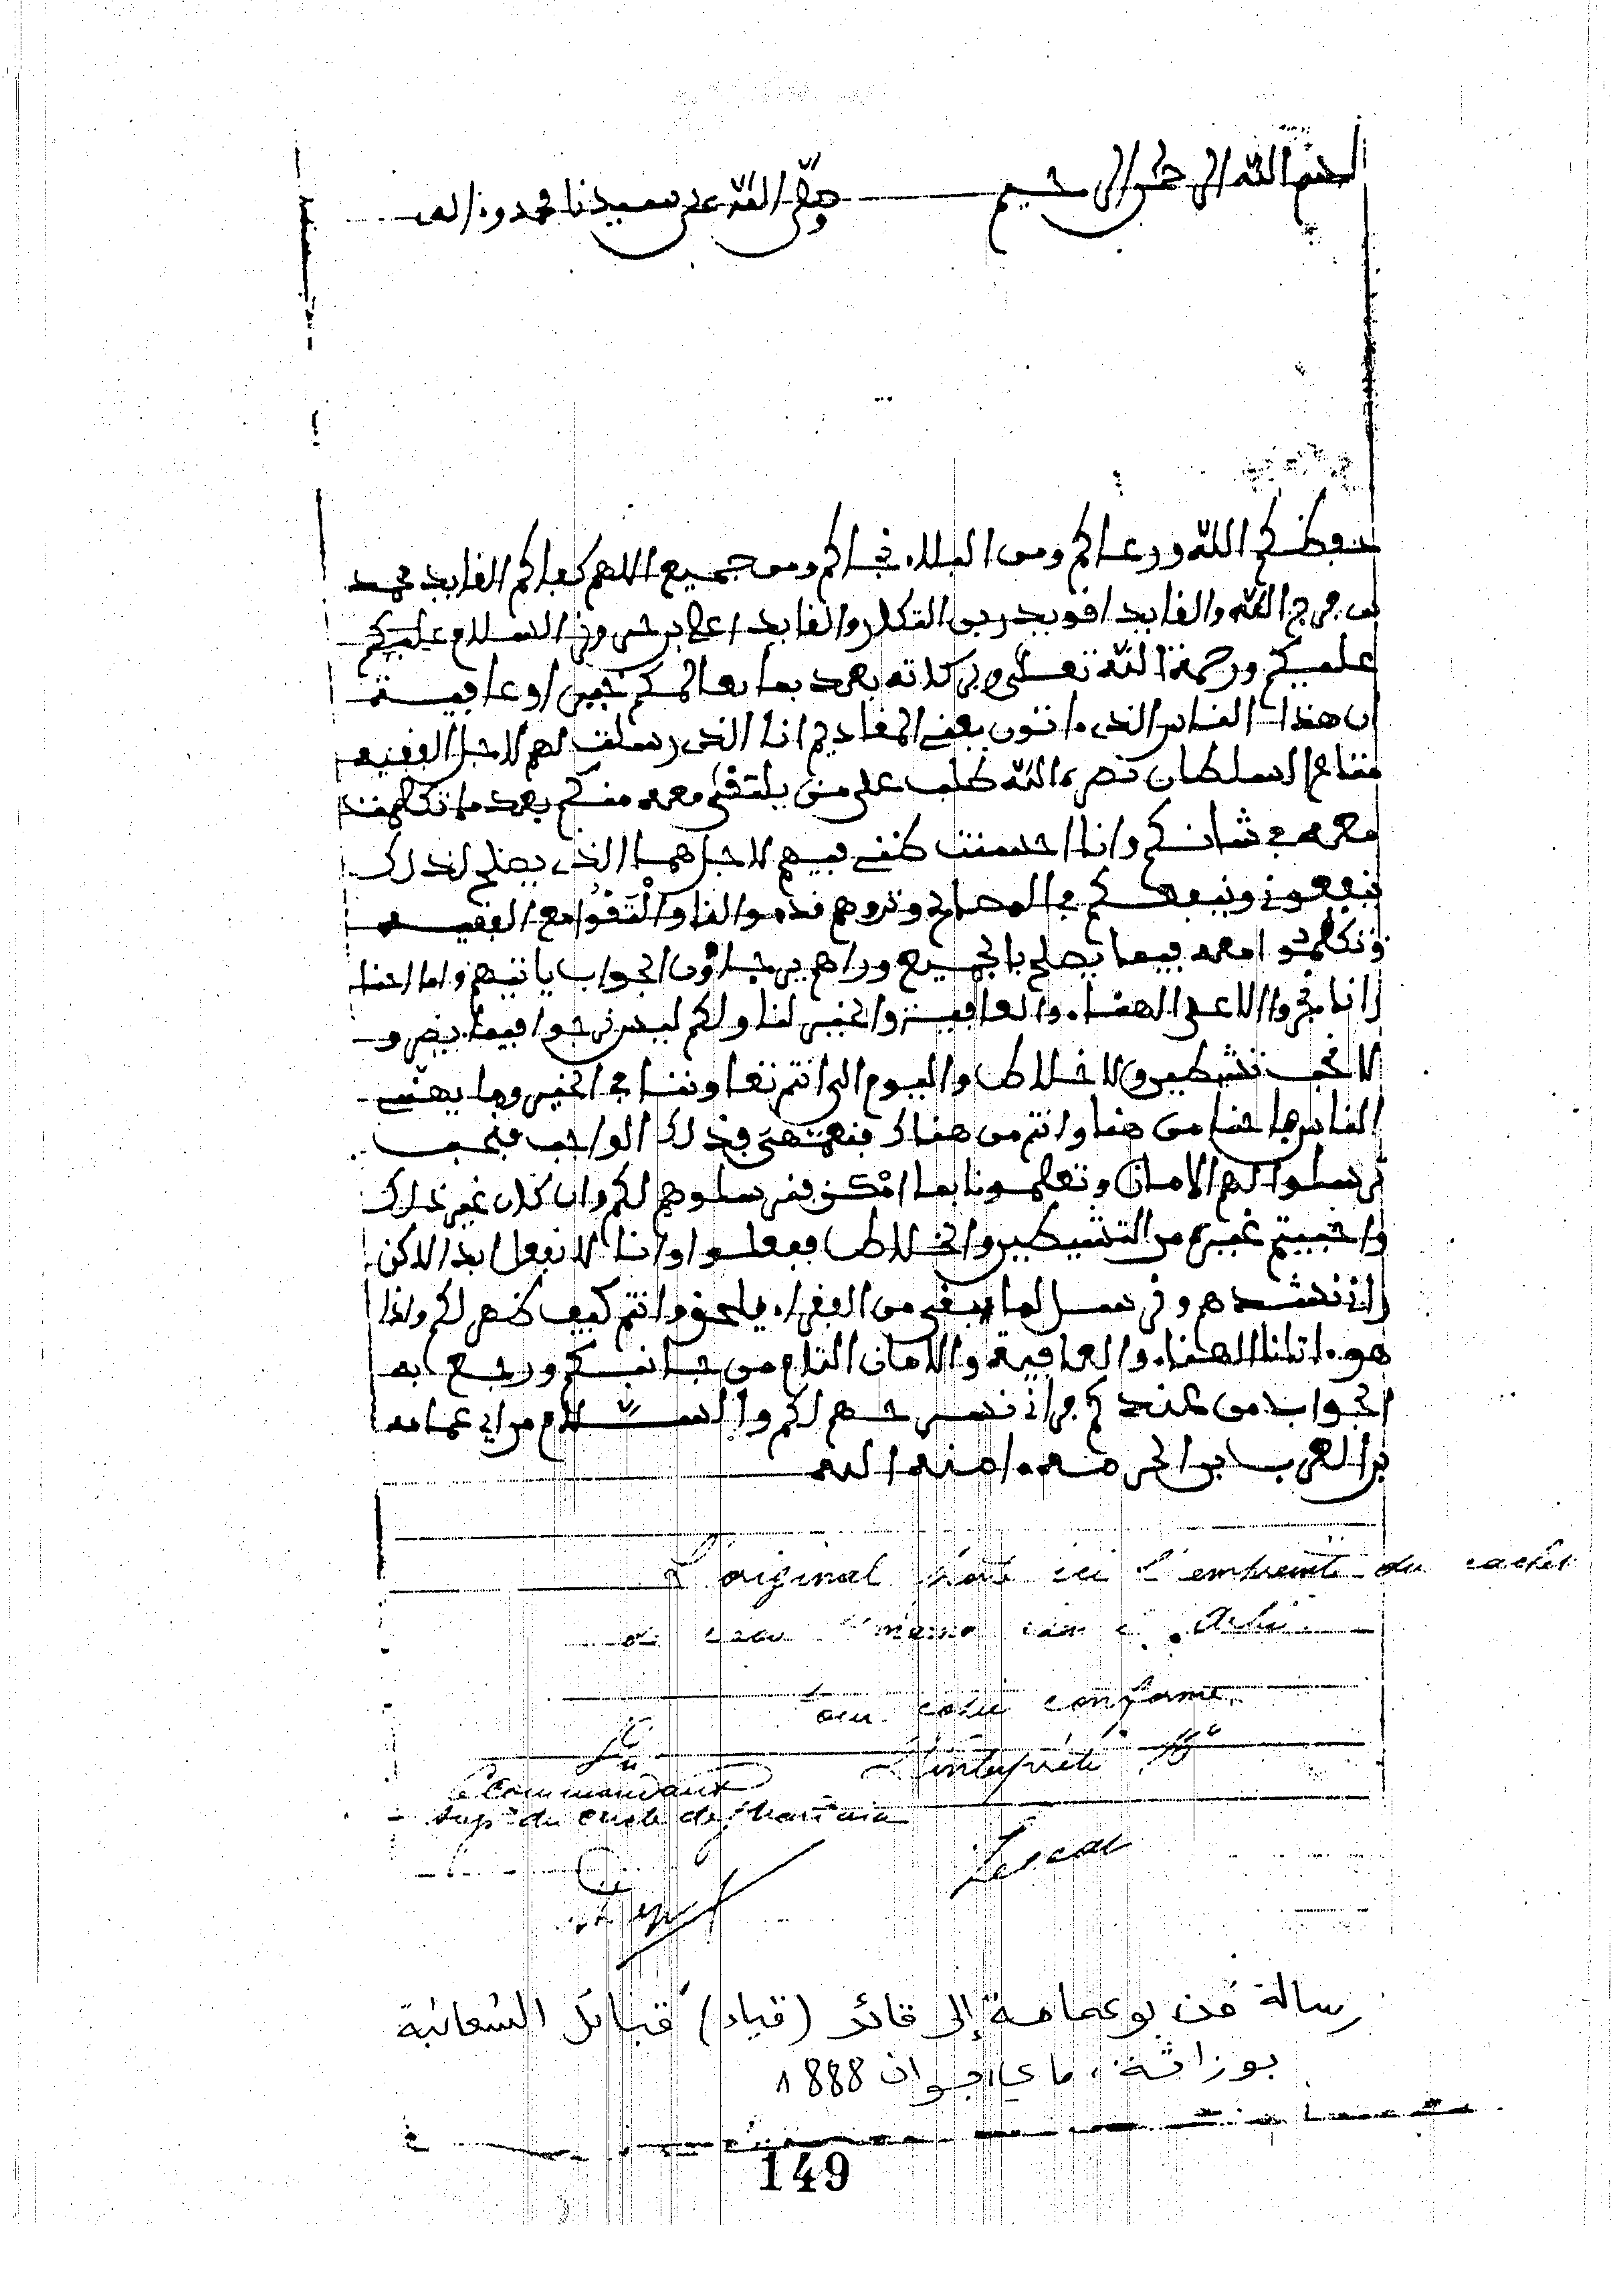 بسم الله الرحمن الرحيم وصلى الله على سيدنا محمد وءاله
حفظكم الله ورعاكم ومن البلاء نجاكم ومن جميع الاهم كفاكم القايد محمد
بن جرج الله والقايد اقويدر بن التكار والقايد السلام عليكم
عليكم ورحمة الله تعلى وبركاته بعد بما بعالمكم خير او عافية
ان هذا الناس الذي ماتون بعض المقاديم انا الذي رسلت لهم لاجل الفقيه
متاع السلطان نصره الله طلب على من يلتقى معه منكم بعد ما تكلمت
معه في شانكم وانا احسنت ظني فيهم لاجل هما الذي يصلح لذلك
ينفعوني وينفعكم في المصالح وتروهم قدموا لنا والْتَقُوا مع الفقيه
وتكلموا معه فيما يصلح بالجميع وراهم يرجاون الجواب ياتيهم واما احنا
رانا نجروا الا على الهناء والعافية والخير لنا ولكم ليس نرجوا فيما يضر و
لا نحب تشطير ولا خلاط واليوم الى انتم تعاونتنا في الخير وما يهني
الناس ها احنا من هنا وانتم من هناك فذلك الواجب فنحب
ترسلوا لهم الامان وتعلمونا بما امكن فنرسلوهم لكم وان كان غير ذلك
واحبيتم غيره من التشطير والخلاط ففعلوا وانا لا نفعل بذا لاكن
راني ننشدهم ونرسل لما بقى من الفقراء يلحقوا وانتم كيف ظهر لكم واذا
هو اتانا الهناء والعافية والامان التام من جانبكم ورجع به
الجواب من عندكم راني نسرحهم لكم والسلام من ابي عمامه
بن العرب بن الحرمه ءامنه الله
L'original porte ici l'empreinte du cachet
de Bou Amama ben el Arbi.
Pour copie conforme,
L'interprète
Vu
Le Commandant
Supr du Cercle de Ghardaia
رسالة من بوعمامة إلى قائد (قياد) قبائل الشعانبة
بوزانة، ماي/جوان 1888
149